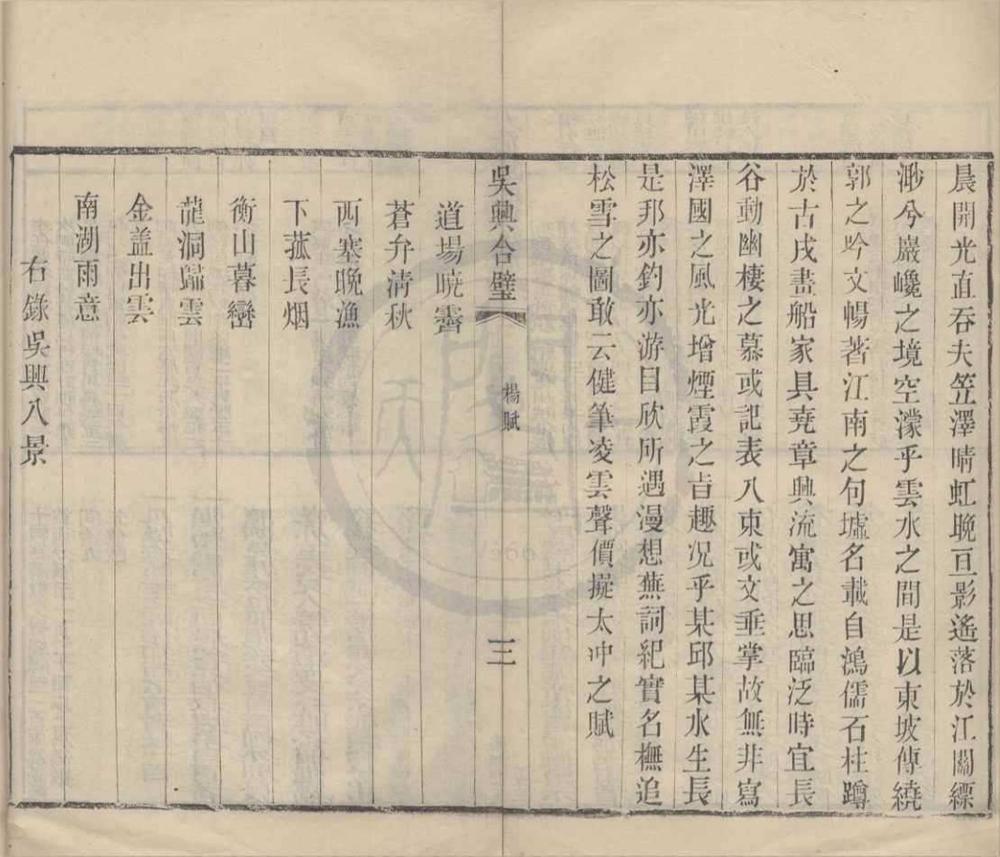 晨開光直吞夫笠澤晴虹晚亘影遙落於江關縹
渺兮巖巉之境空濛乎雲水之間是以東坡傳繞
郭之吟文暢著江南之句墟名載自鴻儒石柱蹲
於古戌畫船家具堯章興流寓之思臨泛時宜長
谷動幽棲之慕或記表八柬或文垂掌故無非寫
澤國之風光增煙霞之旨趣况乎某邱某水生長
是邦亦釣亦游目欣所遇漫想蕪詞紀實名橅追
松雪之圖敢云健筆凌雲聲價擬太冲之賦
吳興合璧
楊賦
三
道場曉霽
蒼弁清秋
西塞晚漁
下菰長烟
衡山暮巒
龍洞歸雲
金盖出雲
南湖雨意
右錄吳興八景